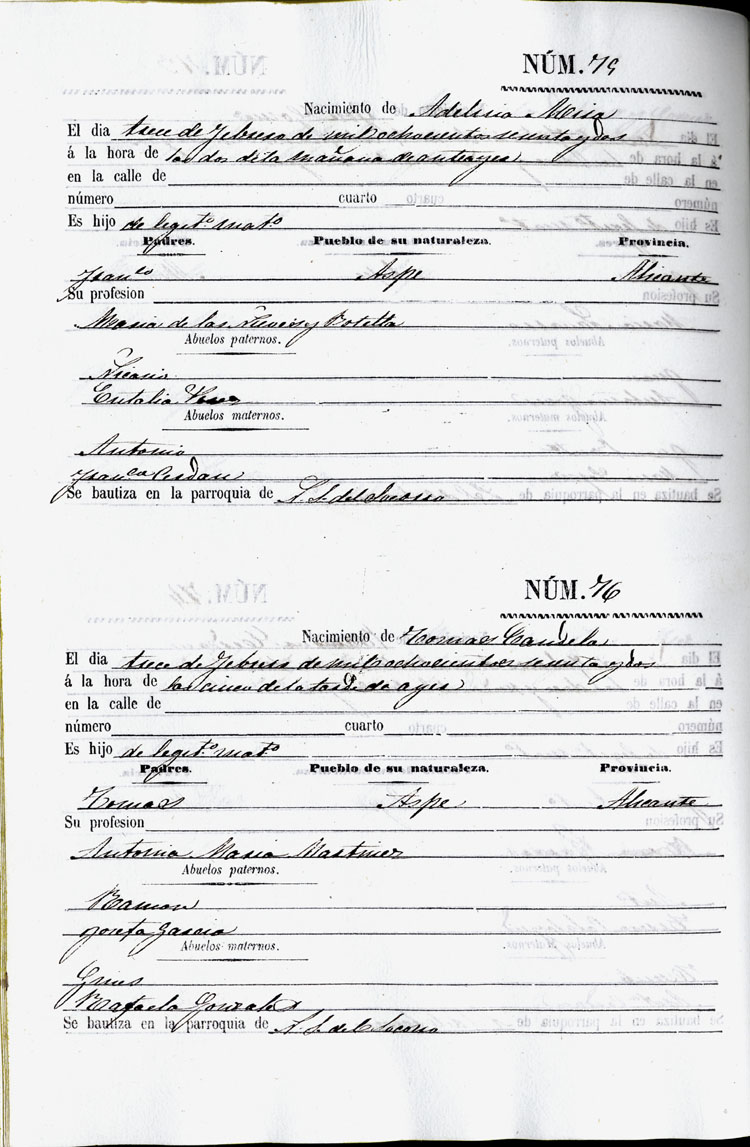 NÚM. 75
Nacimiento de Adelina Mira
El dia trece de Febrero de mil ochocientos sesenta y dos
á la hora de las dos de la mañana de anteayer
en la calle de
número cuarto
Es hijo de legit.º mat.º
Padres. Pueblo de su naturaleza. Provincia.
Fran.co Aspe Alicante
Su profesion
Maria de las Nieves y Botella
Abuelos paternos.
Nicasio
Eulalia
Abuelos maternos.
Antonio
Fran.ca Cerdan
Se bautiza en la parroquia de N. S. del Socorro
NÚM. 76
Nacimiento de Tomas Candela
El dia trece de Febrero de mil ochocientos sesenta y dos
á la hora de las cinco de la tarde de ayer
en la calle de
número cuarto
Es hijo de legit.º mat.º
Padres. Pueblo de su naturaleza. Provincia.
Tomas Aspe Alicante
Su profesion
Antonia Maria Martinez
Abuelos paternos.
Ramon
Josefa Garcia
Abuelos maternos.
Gines
Rafaela Gonzalez
Se bautiza en la parroquia de N. S. del Socorro